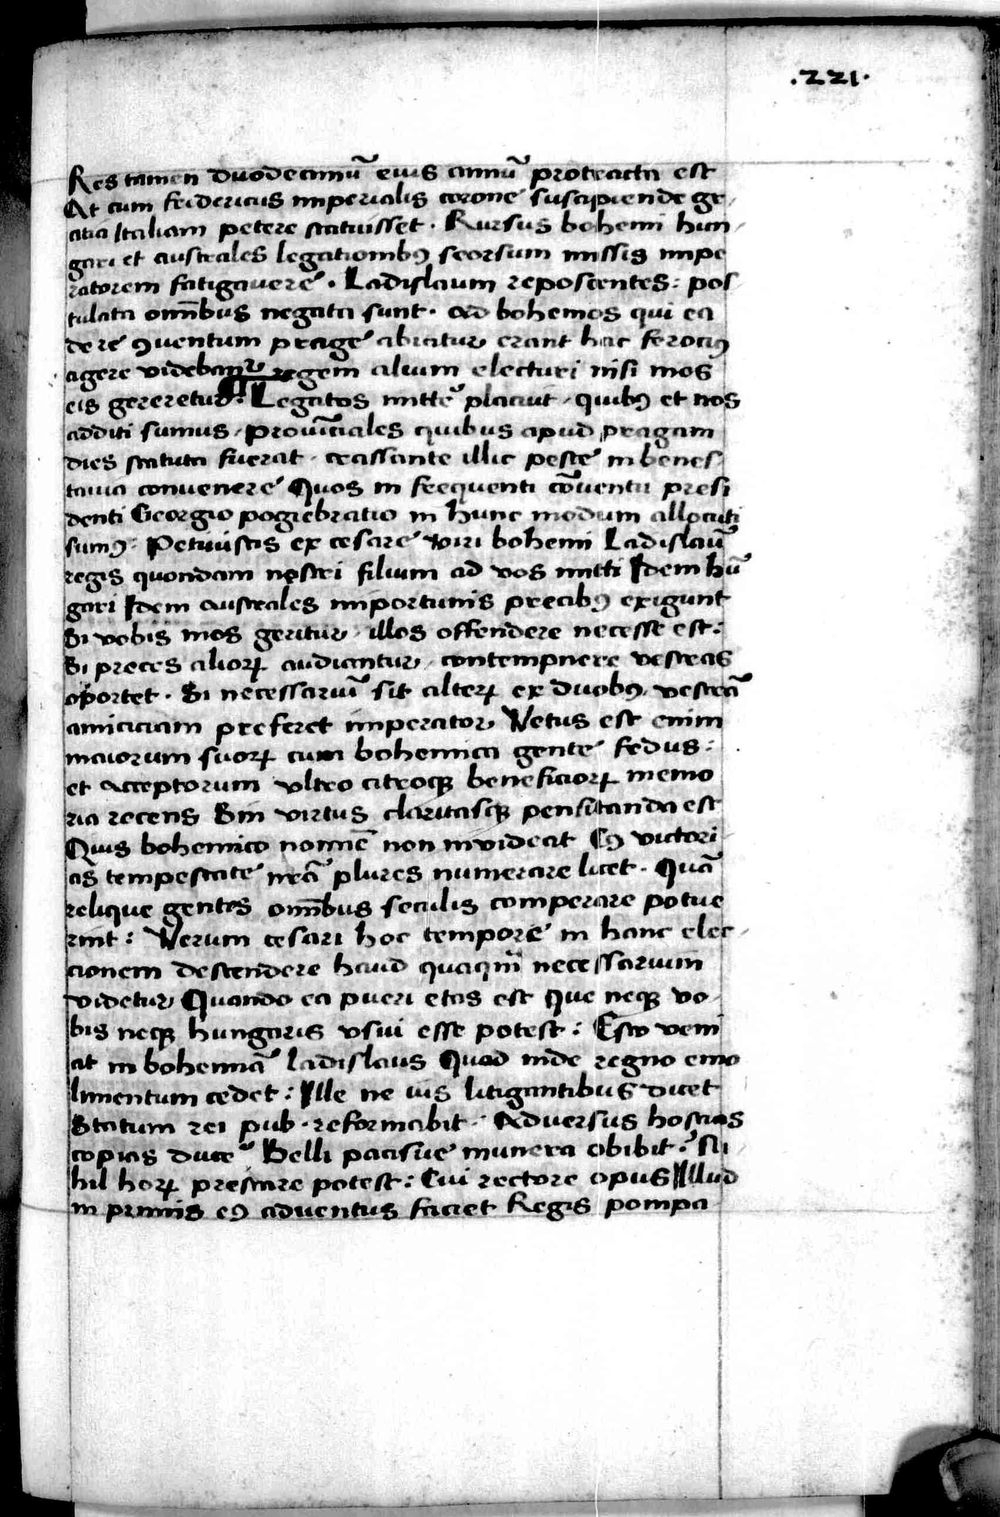 .221.
Res tamen duodecimū eius annū protracta est
At cum fridericus imperialis corone suscipiende gr-
atia Italiam petere statuisset . Rursus bohemi hun-
gari et australes legationibꝰ seorsum missis impe
ratorem fatigavere . Ladislaum reposcentes : pos
tulata om̄ibus negata sunt . Ad bohemos qui ea
de re ꝯuentum prage abiatur erant hac ferociꝰ
agere videbant᷑ regem alium electuri nisi mos
eis gereretur . ¶ Legatos mitte᷑ placuit . quibꝰ et nos
additi sumus . Prouīciales quibus apud pragam
dies statuta fuerat . crassante illic peste in benes-
tauia convenere Quos in frequenti cōventu presi
denti Georgio pogiebratio in hunc modum allocuti
sumꝰ . Petiuistis ex cesare viri bohemi Ladislaū
regis quondam nostri filium ad vos mitti Idem hū
gari Idem australes importunis precibꝰ exigunt
Si vobis mos geritur . illos offendere necesse est :
Si preces alioꝝ audiantur . contempnere vestras
oportet . Si necessariū sit alteꝝ ex duobꝰ . vestrā
amiciciam preferet imperator Vetus est enim
maiorum suoꝝ cum bohemica gente fedus :
et acceptorum vltro citroqꝫ beneficioꝝ memo
ria recens Sin virtus claritasqꝫ pensitanda est
Quis bohemico nomīe non invideat Cꝰ victori-
as tempestate nrā plures numerare licet . Quā
relique gentes om̄ibus seculis comperare potue
rint : Verum cesari hoc tempore in hanc elec-
cionem descendere haud quaqm̄ necessarium
videtur Quando ea pueri etas est Que neqꝫ vo-
bis neqꝫ hungaris vsui esse potest : Esto veni
at in bohemiā ladislaus Quod inde regno emo
limentum cedet : Ille ne ius litigantibus dicet
Statum rei pub . reformabit . Adversus hostias
copias duce᷑ Belli pacisue munera obibit : Ni-
hil hoꝝ prestare potest : Cui rectore opus Illud
in primis eꝰ adventus faciet Regis pompa